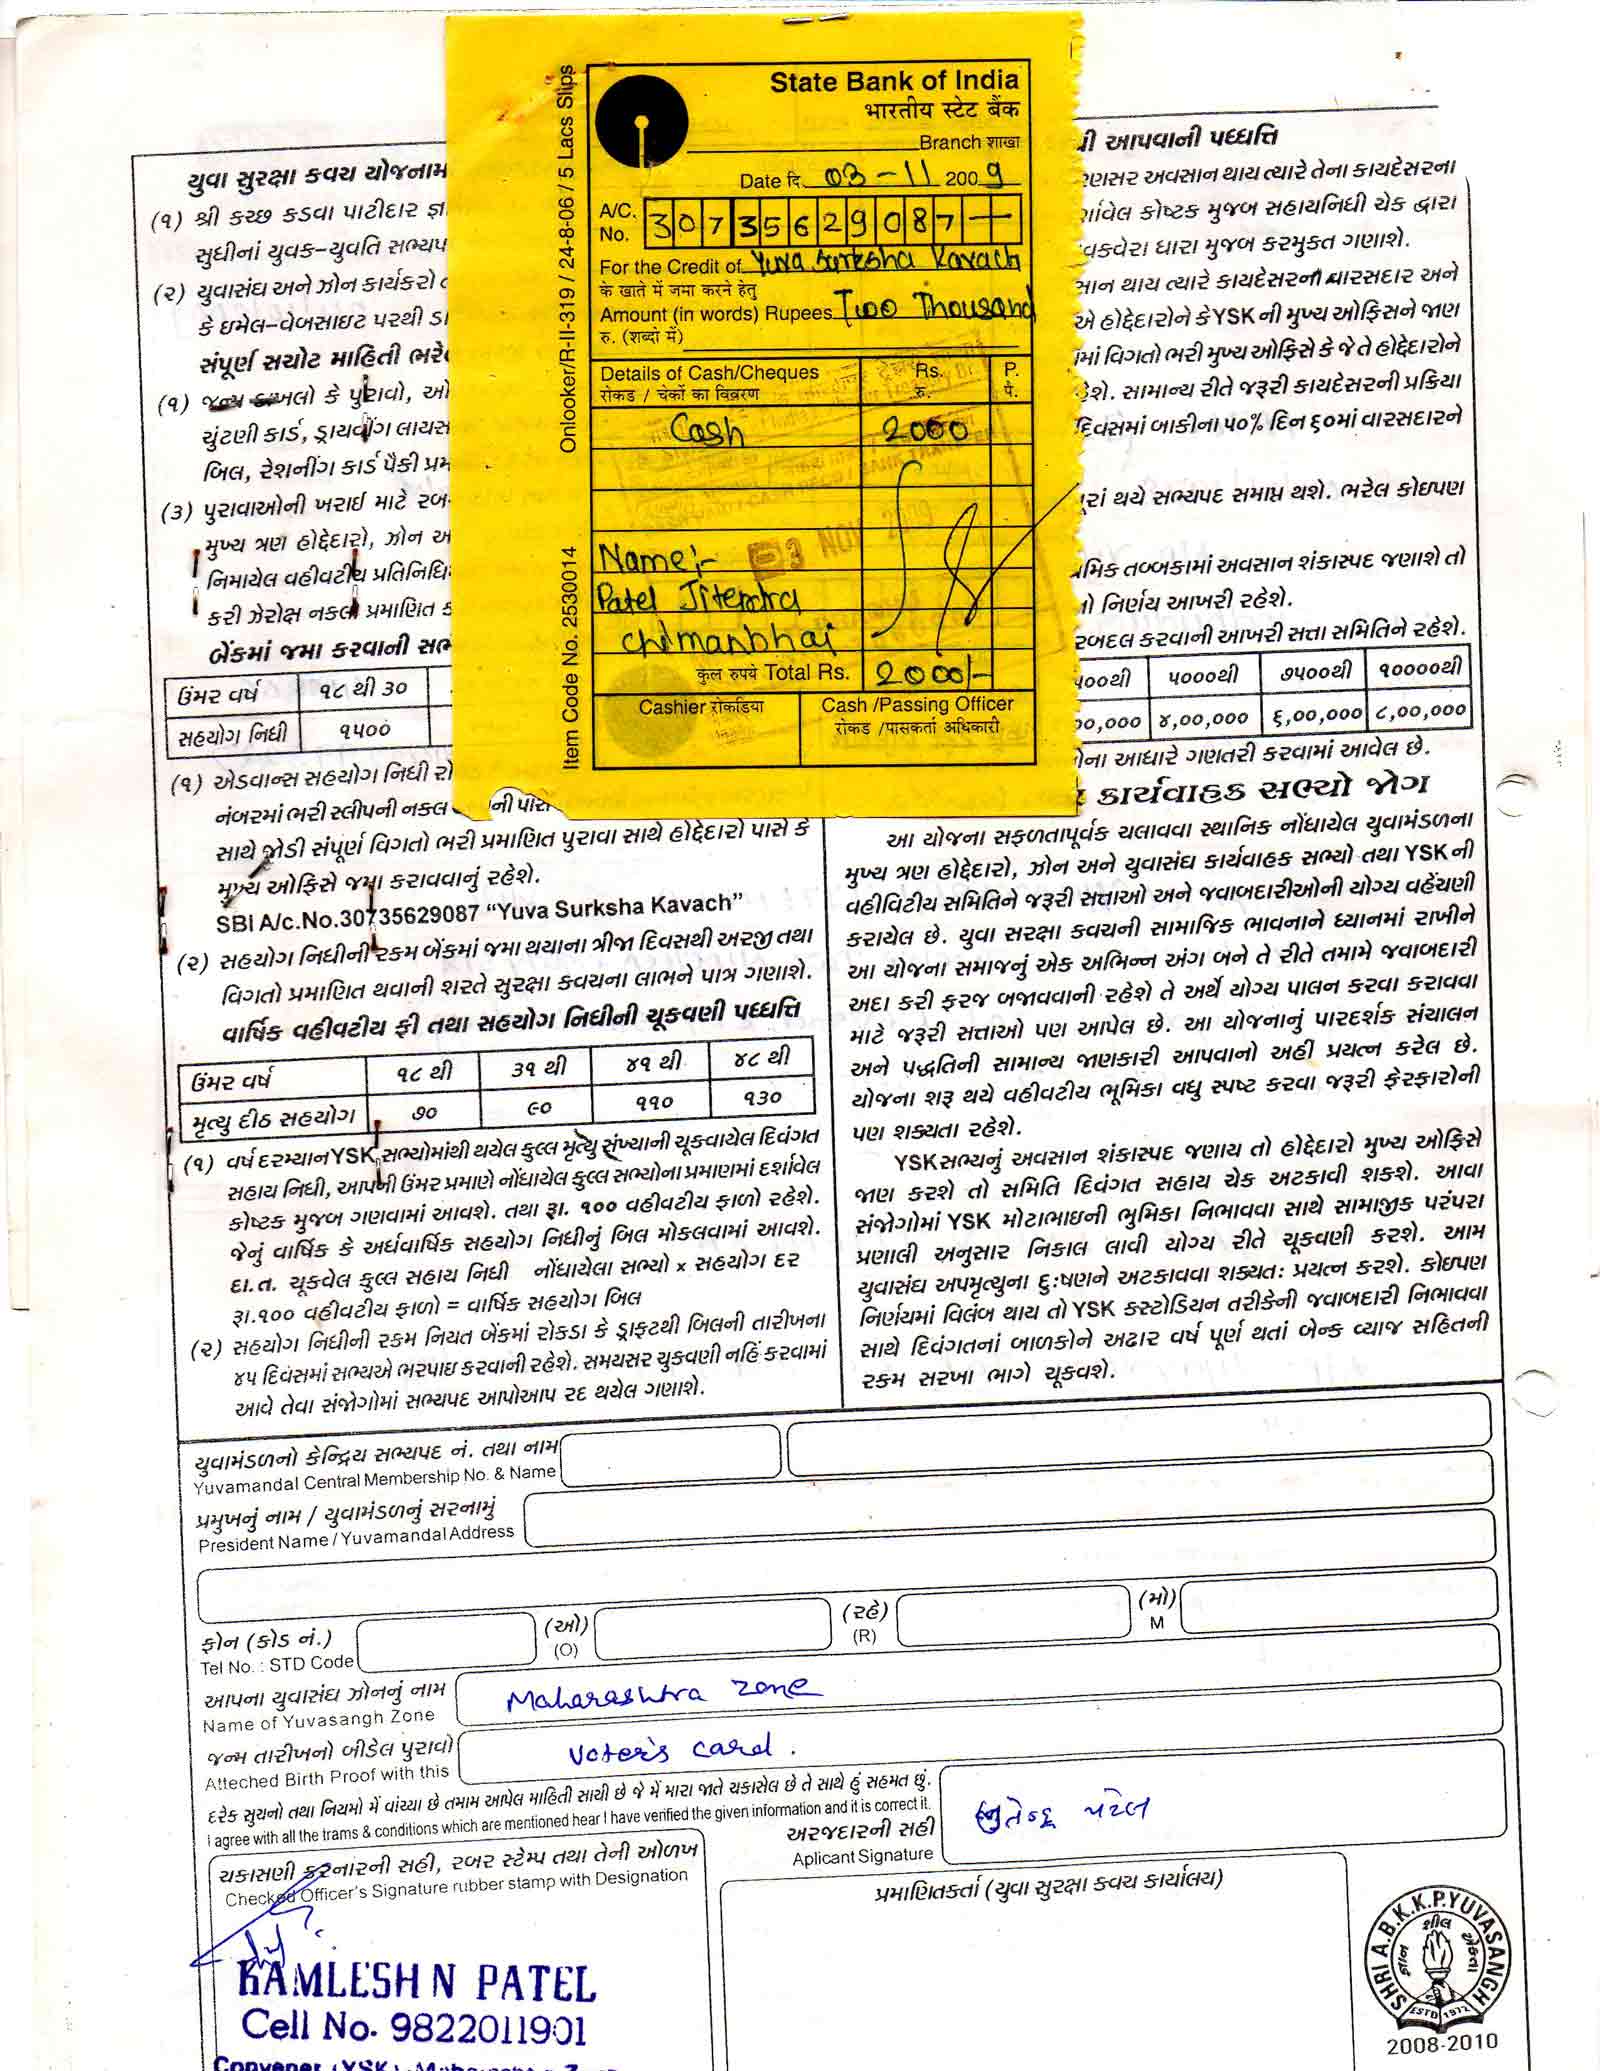 State Bank of India
भारतीय स्टेट बैंक
Branch शाखा
Date दि. 03-11 2009
A/C. No. 30735629087
For the Credit of Yuva Surksha Kavach
के खाते में जमा करने हेतु
Amount (in words) Rupees Two Thousand
रु. (शब्दों में)
Details of Cash/Cheques Rs. P.
रोकड / चेकों का विवरण रु. पै.
Cash 2000
03 NOV 2009
Name:-
Patel Jitendra
chimanbhai
कुल रुपये Total Rs. 2000/-
Cashier रोकडिया Cash /Passing Officer
रोकड /पासकर्ता अधिकारी
Item Code No. 2530014 Onlooker/R-II-319 / 24-8-06 / 5 Lacs Slips
યુવા સુરક્ષા કવચ યોજનામ
(૧) શ્રી કચ્છ કડવા પાટીદાર જ્ઞ
સુધીનાં યુવક-યુવતિ સભ્યપ
(૨) યુવાસંઘ અને ઝોન કાર્યકરો
કે ઇમેલ-વેબસાઇટ પરથી ડા
સંપૂર્ણ સચોટ માહિતી ભરે
(૧) જન્મ દાખલો કે પુરાવો, ઓ
ચુંટણી કાર્ડ, ડ્રાયવીંગ લાયસ
બિલ, રેશનીંગ કાર્ડ પૈકી પ્રમ
(૩) પુરાવાઓની ખરાઇ માટે રબ
મુખ્ય ત્રણ હોદ્દેદારો, ઝોન અ
નિમાયેલ વહીવટીય પ્રતિનિધિ
કરી ઝેરોક્ષ નકલ પ્રમાણિત ક
બેંકમાં જમા કરવાની સભ
ઉંમર વર્ષ ૧૮ થી ૩૦
સહયોગ નિધી ૧૫૦૦
(૧) એડવાન્સ સહયોગ નિધી રો
નંબરમાં ભરી સ્લીપની નકલ
સાથે જોડી સંપૂર્ણ વિગતો ભરી પ્રમાણિત પુરાવા સાથે હોદ્દેદારો પાસે કે
મુખ્ય ઓફિસે જમા કરાવવાનું રહેશે.
SBI A/c.No.30735629087 “Yuva Surksha Kavach”
(૨) સહયોગ નિધીની રકમ બેંકમાં જમા થયાના ત્રીજા દિવસથી અરજી તથા
વિગતો પ્રમાણિત થવાની શરતે સુરક્ષા કવચના લાભને પાત્ર ગણાશે.
વાર્ષિક વહીવટીય ફી તથા સહયોગ નિધીની ચૂકવણી પધ્ધતિ
ઉંમર વર્ષ ૧૮ થી ૩૧ થી ૪૧ થી ૪૮ થી
મૃત્યુ દીઠ સહયોગ ૭૦ ૯૦ ૧૧૦ ૧૩૦
(૧) વર્ષ દરમ્યાન YSK સભ્યોમાંથી થયેલ કુલ્લ મૃત્યુ સંખ્યાની ચૂકવાયેલ દિવંગત
સહાય નિધી, આપની ઉંમર પ્રમાણે નોંધાયેલ કુલ્લ સભ્યોના પ્રમાણમાં દર્શાવેલ
કોષ્ટક મુજબ ગણવામાં આવશે. તથા રૂા. ૧૦૦ વહીવટીય ફાળો રહેશે.
જેનું વાર્ષિક કે અર્ધવાર્ષિક સહયોગ નિધીનું બિલ મોકલવામાં આવશે.
દા.ત. ચૂકવેલ કુલ્લ સહાય નિધી નોંધાયેલા સભ્યો x સહયોગ દર
રૂા.૧૦૦ વહીવટીય ફાળો = વાર્ષિક સહયોગ બિલ
(૨) સહયોગ નિધીની રકમ નિયત બેંકમાં રોકડા કે ડ્રાફટથી બિલની તારીખના
૪૫ દિવસમાં સભ્યએ ભરપાઇ કરવાની રહેશે. સમયસર ચુકવણી નહિં કરવામાં
આવે તેવા સંજોગોમાં સભ્યપદ આપોઆપ રદ થયેલ ગણાશે.
ી આપવાની પધ્ધતિ
રણસર અવસાન થાય ત્યારે તેના કાયદેસરના
ર્શાવેલ કોષ્ટક મુજબ સહાયનિધી ચેક દ્વારા
વકવેરા ધારા મુજબ કરમુક્ત ગણાશે.
સાન થાય ત્યારે કાયદેસરનાં વારસદાર અને
એ હોદ્દેદારોને કે YSK ની મુખ્ય ઓફિસને જાણ
માં વિગતો ભરી મુખ્ય ઓફિસે કે જે તે હોદ્દેદારોને
હેશે. સામાન્ય રીતે જરૂરી કાયદેસરની પ્રક્રિયા
દિવસમાં બાકીના ૫૦% દિન ૬૦માં વારસદારને
પુરાં થયે સભ્યપદ સમાપ્ત થશે. ભરેલ કોઇપણ
થમિક તબ્બકામાં અવસાન શંકાસ્પદ જણાશે તો
નો નિર્ણય આખરી રહેશે.
રબદલ કરવાની આખરી સત્તા સમિતિને રહેશે.
૫૦૦થી ૫૦૦૦થી ૭૫૦૦થી ૧૦૦૦૦થી
૦૦,૦૦૦ ૪,૦૦,૦૦૦ ૬,૦૦,૦૦૦ ૮,૦૦,૦૦૦
ોના આધારે ગણતરી કરવામાં આવેલ છે.
કાર્યવાહક સભ્યો જોગ
આ યોજના સફળતાપૂર્વક ચલાવવા સ્થાનિક નોંધાયેલ યુવામંડળના
મુખ્ય ત્રણ હોદ્દેદારો, ઝોન અને યુવાસંઘ કાર્યવાહક સભ્યો તથા YSK ની
વહીવિટીય સમિતિને જરૂરી સત્તાઓ અને જવાબદારીઓની યોગ્ય વહેંચણી
કરાયેલ છે. યુવા સરક્ષા કવચની સામાજિક ભાવનાને ધ્યાનમાં રાખીને
આ યોજના સમાજનું એક અભિન્ન અંગ બને તે રીતે તમામે જવાબદારી
અદા કરી ફરજ બજાવવાની રહેશે તે અર્થે યોગ્ય પાલન કરવા કરાવવા
માટે જરૂરી સત્તાઓ પણ આપેલ છે. આ યોજનાનું પારદર્શક સંચાલન
અને પદ્ધતિની સામાન્ય જાણકારી આપવાનો અહીં પ્રયત્ન કરેલ છે.
યોજના શરૂ થયે વહીવટીય ભૂમિકા વધુ સ્પષ્ટ કરવા જરૂરી ફેરફારોની
પણ શક્યતા રહેશે.
YSK સભ્યનું અવસાન શંકાસ્પદ જણાય તો હોદ્દેદારો મુખ્ય ઓફિસે
જાણ કરશે તો સમિતિ દિવંગત સહાય ચેક અટકાવી શકશે. આવા
સંજોગોમાં YSK મોટાભાઇની ભુમિકા નિભાવવા સાથે સામાજીક પરંપરા
પ્રણાલી અનુસાર નિકાલ લાવી યોગ્ય રીતે ચૂકવણી કરશે. આમ
યુવાસંઘ અપમૃત્યુના દુઃષણને અટકાવવા શક્યતઃ પ્રયત્ન કરશે. કોઇપણ
નિર્ણયમાં વિલંબ થાય તો YSK કસ્ટોડિયન તરીકેની જવાબદારી નિભાવવા
સાથે દિવંગતનાં બાળકોને અઢાર વર્ષ પૂર્ણ થતાં બેન્ક વ્યાજ સહિતની
રકમ સરખા ભાગે ચૂકવશે.
યુવામંડળનો કેન્દ્રિય સભ્યપદ નં. તથા નામ
Yuvamandal Central Membership No. & Name
પ્રમુખનું નામ / યુવામંડળનું સરનામું
President Name / Yuvamandal Address
ફોન (કોડ નં.) (ઓ) (રહે) (મો)
Tel No. : STD Code (O) (R) M
આપના યુવાસંઘ ઝોનનું નામ
Name of Yuvasangh Zone Maharashtra zone
જન્મ તારીખનો બીડેલ પુરાવો
Atteched Birth Proof with this Voter's card.
દરેક સુચનો તથા નિયમો મેં વાંચ્યા છે તમામ આપેલ માહિતી સાચી છે જે મેં મારા જાતે ચકાસેલ છે તે સાથે હું સહમત છું.
I agree with all the trams & conditions which are mentioned hear I have verified the given information and it is correct it.
અરજદારની સહી
Aplicant Signature
પટેલ
ચકાસણી કરનારની સહી, રબર સ્ટેમ્પ તથા તેની ઓળખ
Checked Officer's Signature rubber stamp with Designation
KAMLESH N PATEL
Cell No. 9822011901
Convener (YSK)
પ્રમાણિતકર્તા (યુવા સુરક્ષા કવચ કાર્યાલય)
SHRI A.B.K.K.P.YUVASANGH
જ્ઞાન શીલ એકતા
ESTD 1972
2008-2010